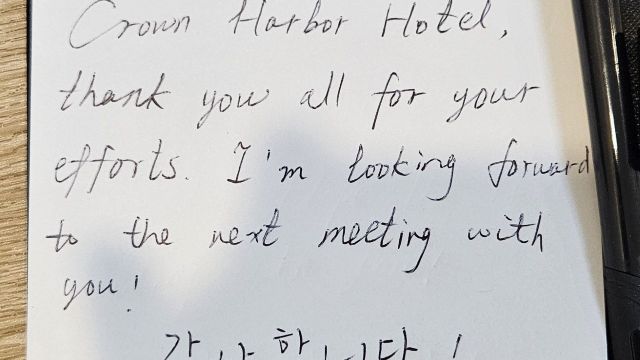 Crown Harbor Hotel,
thank you all for your
efforts. I'm looking forward
to the next meeting with
you!